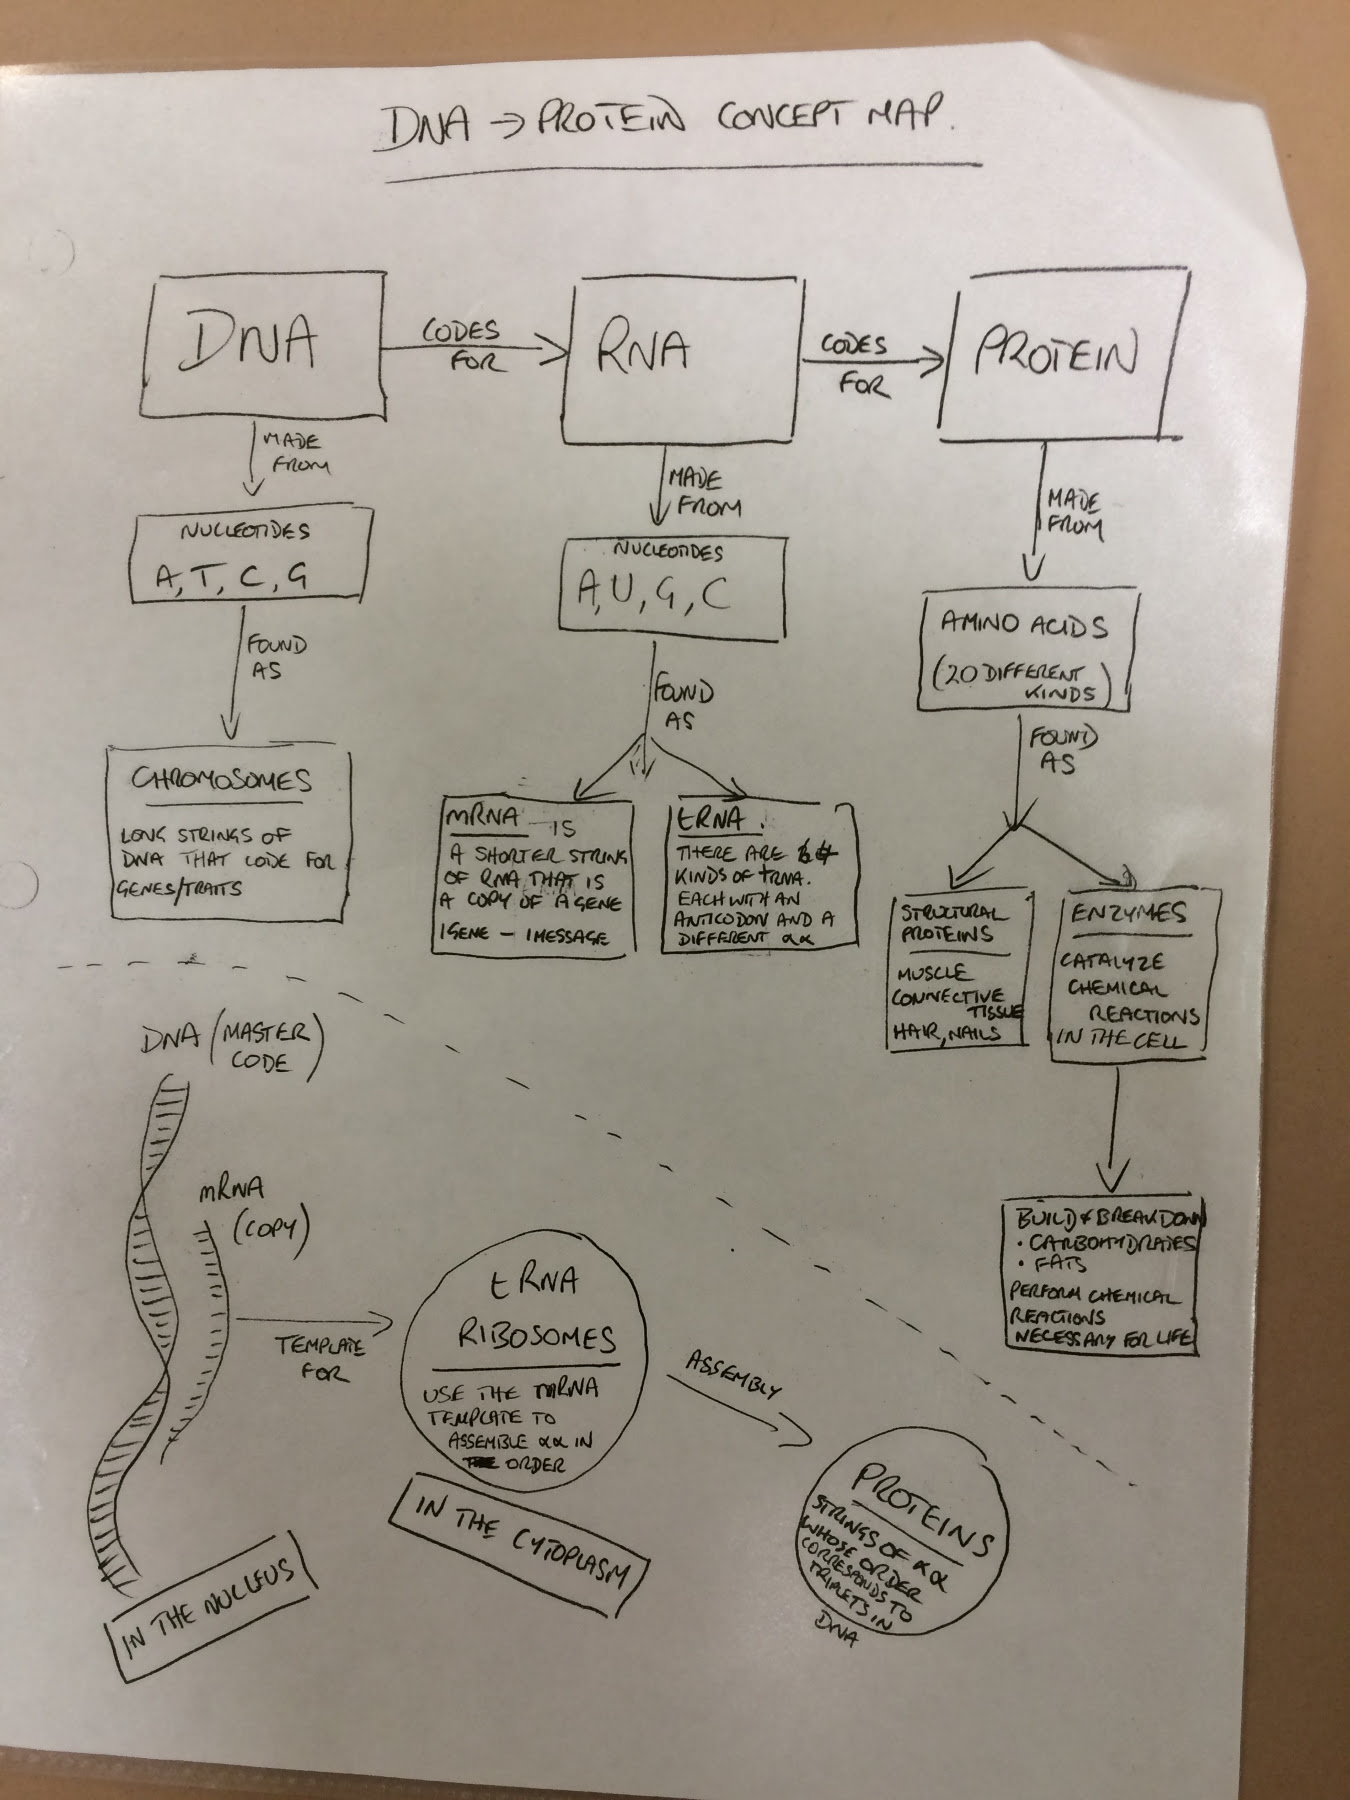 DNA → PROTEIN CONCEPT MAP.
DNA
CODES
FOR
RNA
CODES
FOR
PROTEIN
MADE
FROM
NUCLEOTIDES
A, T, C, G
FOUND
AS
CHROMOSOMES
LONG STRINGS OF
DNA THAT CODE FOR
GENES/TRAITS
MADE
FROM
NUCLEOTIDES
A, U, G, C
FOUND
AS
mRNA IS
A SHORTER STRING
OF RNA THAT IS
A COPY OF A GENE
1GENE - 1MESSAGE
tRNA.
THERE ARE
KINDS OF tRNA.
EACH WITH AN
ANTICODON AND A
DIFFERENT αα
MADE
FROM
AMINO ACIDS
(20 DIFFERENT
KINDS)
FOUND
AS
STRUCTURAL
PROTEINS
MUSCLE
CONNECTIVE
TISSUE
HAIR, NAILS
ENZYMES
CATALYZE
CHEMICAL
REACTIONS
IN THE CELL
BUILD & BREAKDOWN
• CARBOHYDRATES
• FATS
PERFORM CHEMICAL
REACTIONS
NECESSARY FOR LIFE
DNA (MASTER
CODE)
mRNA
(COPY)
IN THE NUCLEUS
TEMPLATE
FOR
tRNA
RIBOSOMES
USE THE mRNA
TEMPLATE TO
ASSEMBLE αα IN
ORDER
IN THE CYTOPLASM
ASSEMBLY
PROTEINS
STRINGS OF αα
WHOSE ORDER
CORRESPONDS TO
TRIPLETS IN
DNA